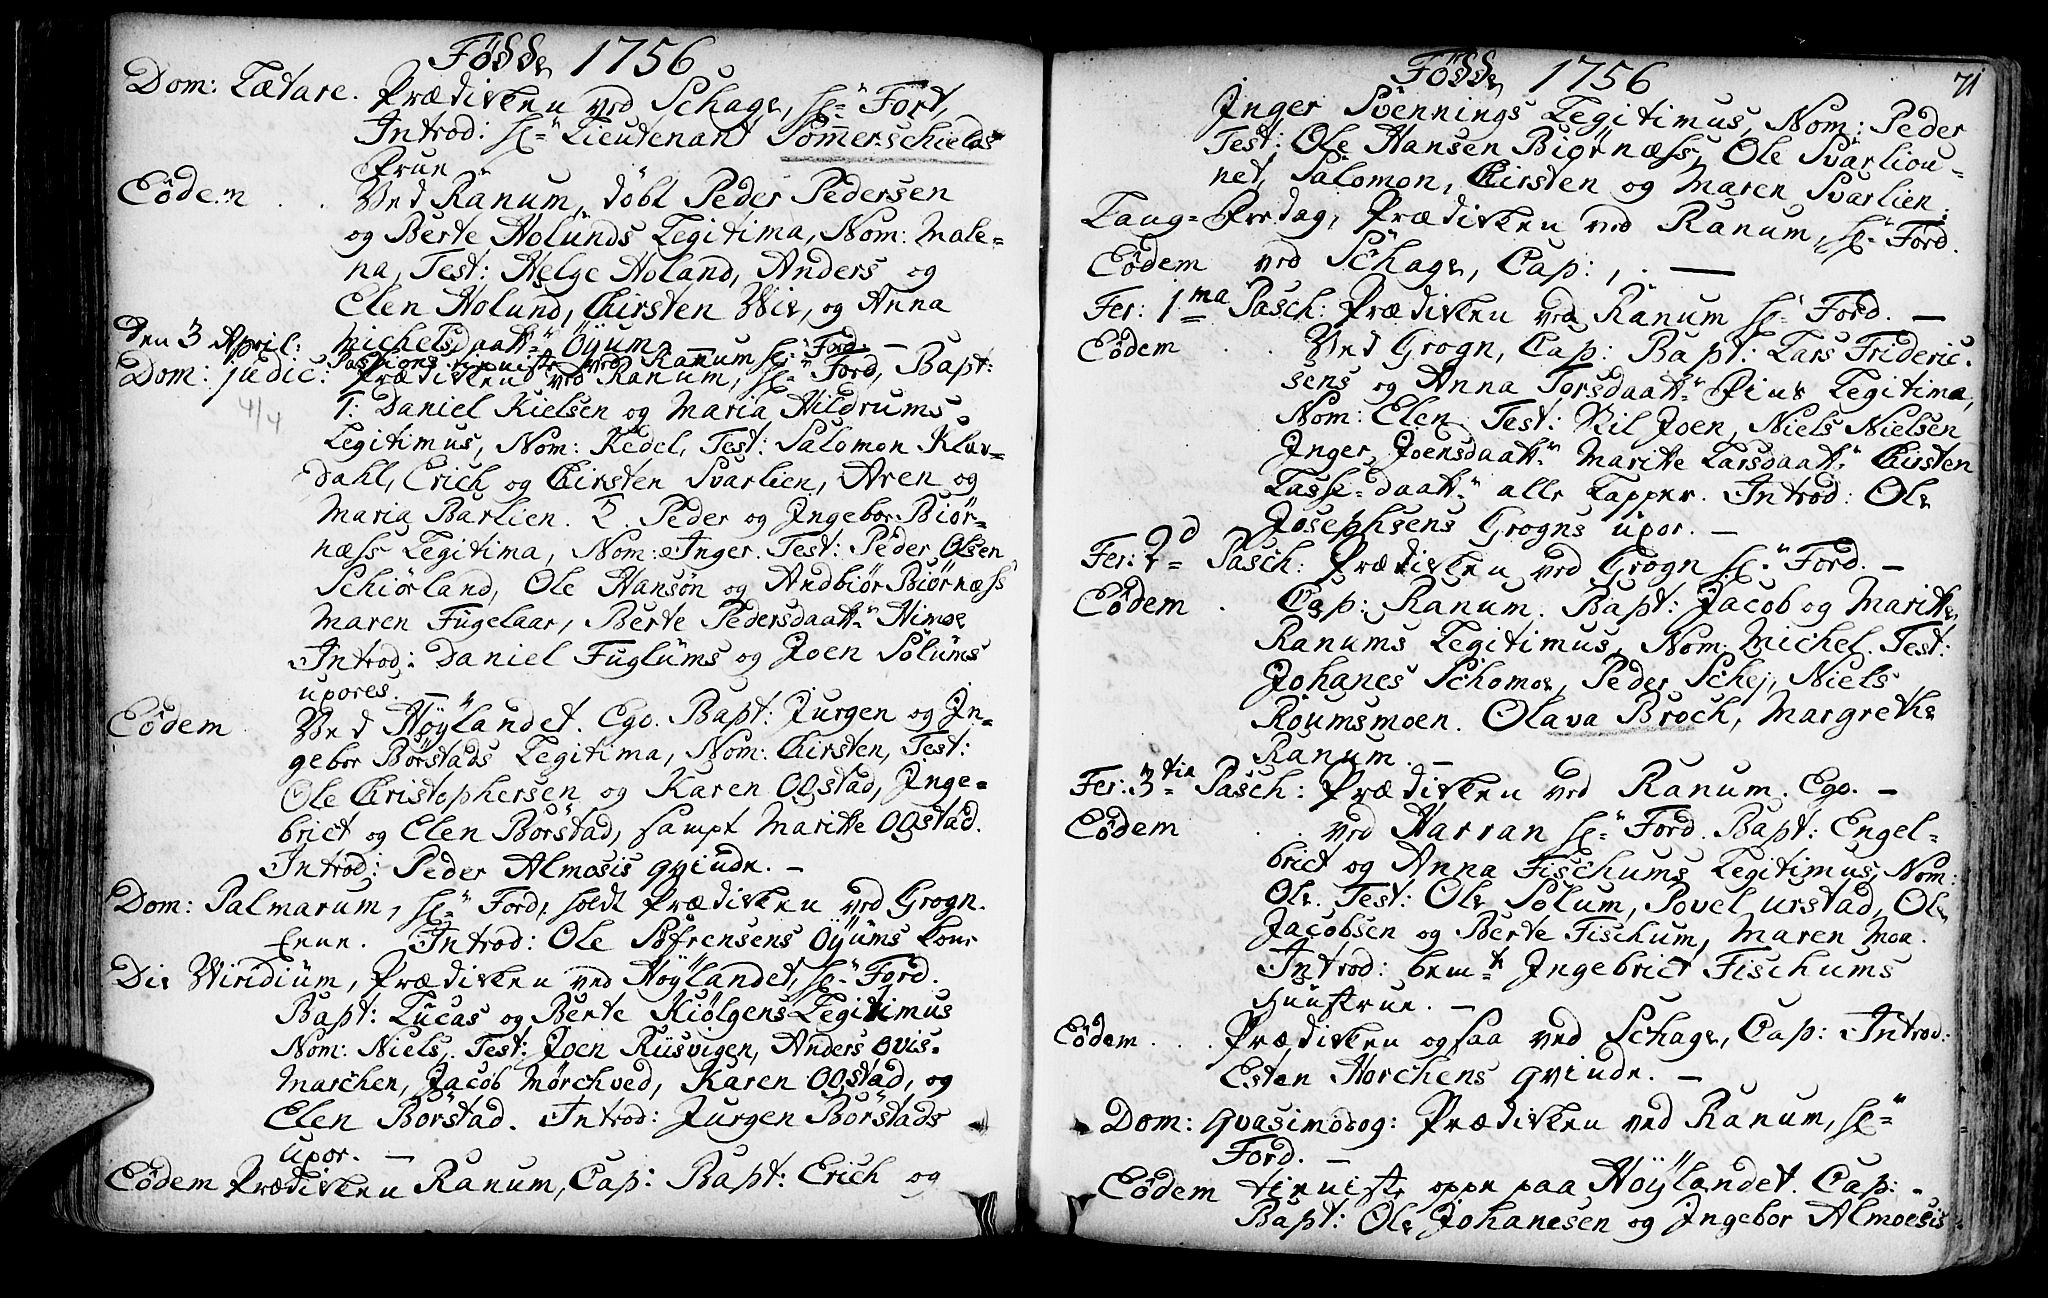 Födde 1756
Dom: Lætare. Prædikken ved Schage, Hr Ford,
Introd: Hr Lieutenant Sommerschields
Frue
Eödem . . Ved Ranum, döbt Peder Pedersen
og Berte Holunds Legitima, Nom: Male=
na, Test: Helge Holand, Anders og
Elen Holund, Chirsten Wie, og Anna
Michelsdaatt: Öÿum. –
Den 3 April: Passions tieniste ved Ranum Hr Ford.
Dom: Judic: Prædikken ved Ranum, Hr Ford, Bapt:
4/4
1: Daniel Kielsen og Maria Hildrums
Legitimus, Nom: Kedel, Test: Salomon Klev=
dahl, Erich og Chirsten Svarlien, Aren og
Maria Barlien. 2. Peder og Ingebor Biör=
næss Legitima, Nom: Inger. Test: Peder Olsen
Schiörland, Ole Hansøn og Andbiör Biørnæss
Maren Fugelaar, Berte Pedersdaatt: Himoe
Introd: Daniel Fuglums og Joen Solums
uxores. –
Eödem . Ved Höÿlandet. Ego. Bapt: Jurgen og In=
gebor Börstads Legitima, Nom: Chirsten, Test:
Ole Christophersen og Karen Ogstad, Inge=
brict og Elen Börstad, sampt Maritte Ogstad.
Introd: Peder Almosis qvinde. –
Dom: Palmarum, Hr Ford, holdt Prædikken ved Grogn.
Introd: Ole Söfrensens Öÿums Kone
Die Viridium, Prædikken ved Höÿlandet, Hr Ford.
Bapt: Lucas og Berte Kiölgens Legitimus
Nom: Niels, Test: Joen Rusvigen, Anders Ovis=
marchen, Jacob Mörchved, Karen Ogstad, og
Elen Börstad. Introd: Jurgen Börstads
uxor. –
Eödem Prædikken Ranum, Cap: Bapt: Erich og
Födde 1756
71
Inger Svennings Legitimus, Nom: Peder
Test: Ole Hansen Biörnæss, Ole Svarliou=
net, Salomon, Chirsten og Maren Svarlien:
Lang=Fredag, Prædikken ved Ranum, Hr Ford.
Eödem ved Schage, Cap: , . —
Fer: 1ma Pasch: Prædikken ved Ranum Hr Ford. –
Eödem . . Ved Grogn, Cap: Bapt: Lars Frideric=
sens og Anna Torsdaatt: Fines Legitima,
Nom: Elen Test: Kil Joen, Niels Nielsen
Inger Joensdaatt: Maritte Larsdaatt: Chirsten
Lasse=daatt: alle Lapper. Introd: Ole
Josephsens Grogns uxor. –
Fer: 2d Pasch: Prædikken ved Grogn Hr Ford. –
Eödem . Cap: Ranum. Bapt: Jacob og Maritte
Ranums Legitimus, Nom: Michel. Test:
Johanes Schomoe, Peder Schej, Niels
Roumsmoen. Olava Broch, Margrethe
Ranum. –
Fer: 3tia Pasch: Prædikken ved Ranum. Ego. –
Eödem . . ved Harran Hr Ford. Bapt: Engel=
brict og Anna Fischums Legitimus, Nom:
Ole. Test: Ole Solum, Povel Urstad, Ole
Jacobsen og Berte Fischum, Maren Moa.
Introd: bemte Ingebrict Fischums
Huustrue. –
Eödem . . . Prædikken ogsaa ved Schage, Cap: Introd:
Esten Horchens qvinde. –
Dom: Qvasimodog: Prædikken ved Ranum, Hr
Ford. –
Eödem tieniste oppe paa Höÿlandet. Cap: -
Bapt: Ole Johanesen og Ingebor Almoesis